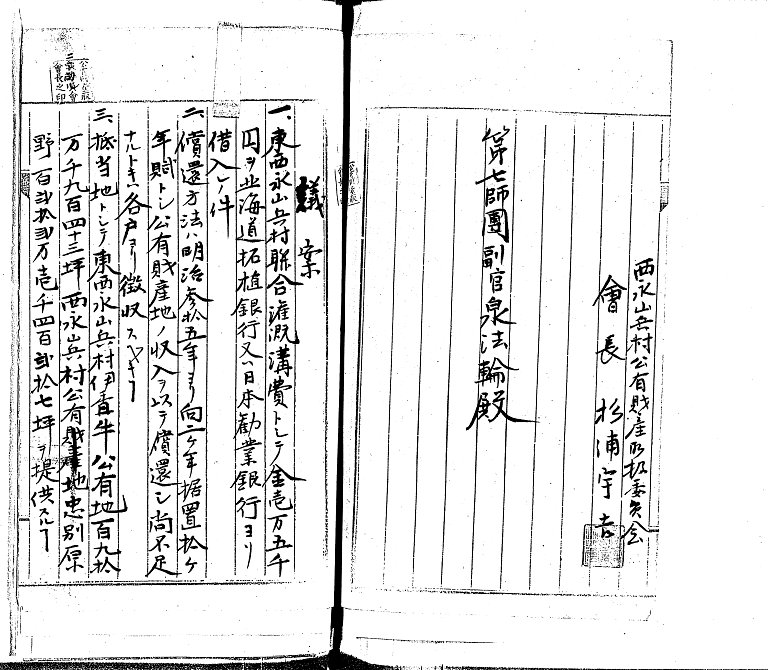 西永山兵村公有財産取扱委員会
會長 杉浦宇吉
第七師團副官泉法輪殿
議案
一、東西永山兵村聯合灌漑溝費トシテ金壱万五千
円ヲ北海道拓植銀行又ハ日本勧業銀行ヨリ
借入レノ件
二、償還方法ハ明治参拾五年ヨリ向二ケ年据置拾ケ
年賦トシ公有財産地ノ収入ヲ以テ償還シ尚不足
ナルトキハ各戸ヨリ徴収スヘキヿ
三、抵当地トシテ東西永山兵村伊香牛公有地百九拾
万千九百四十三坪 西永山兵村公有財産地忠別原
野百弐拾弐万壱千四百弐拾七坪ヲ提供スルヿ